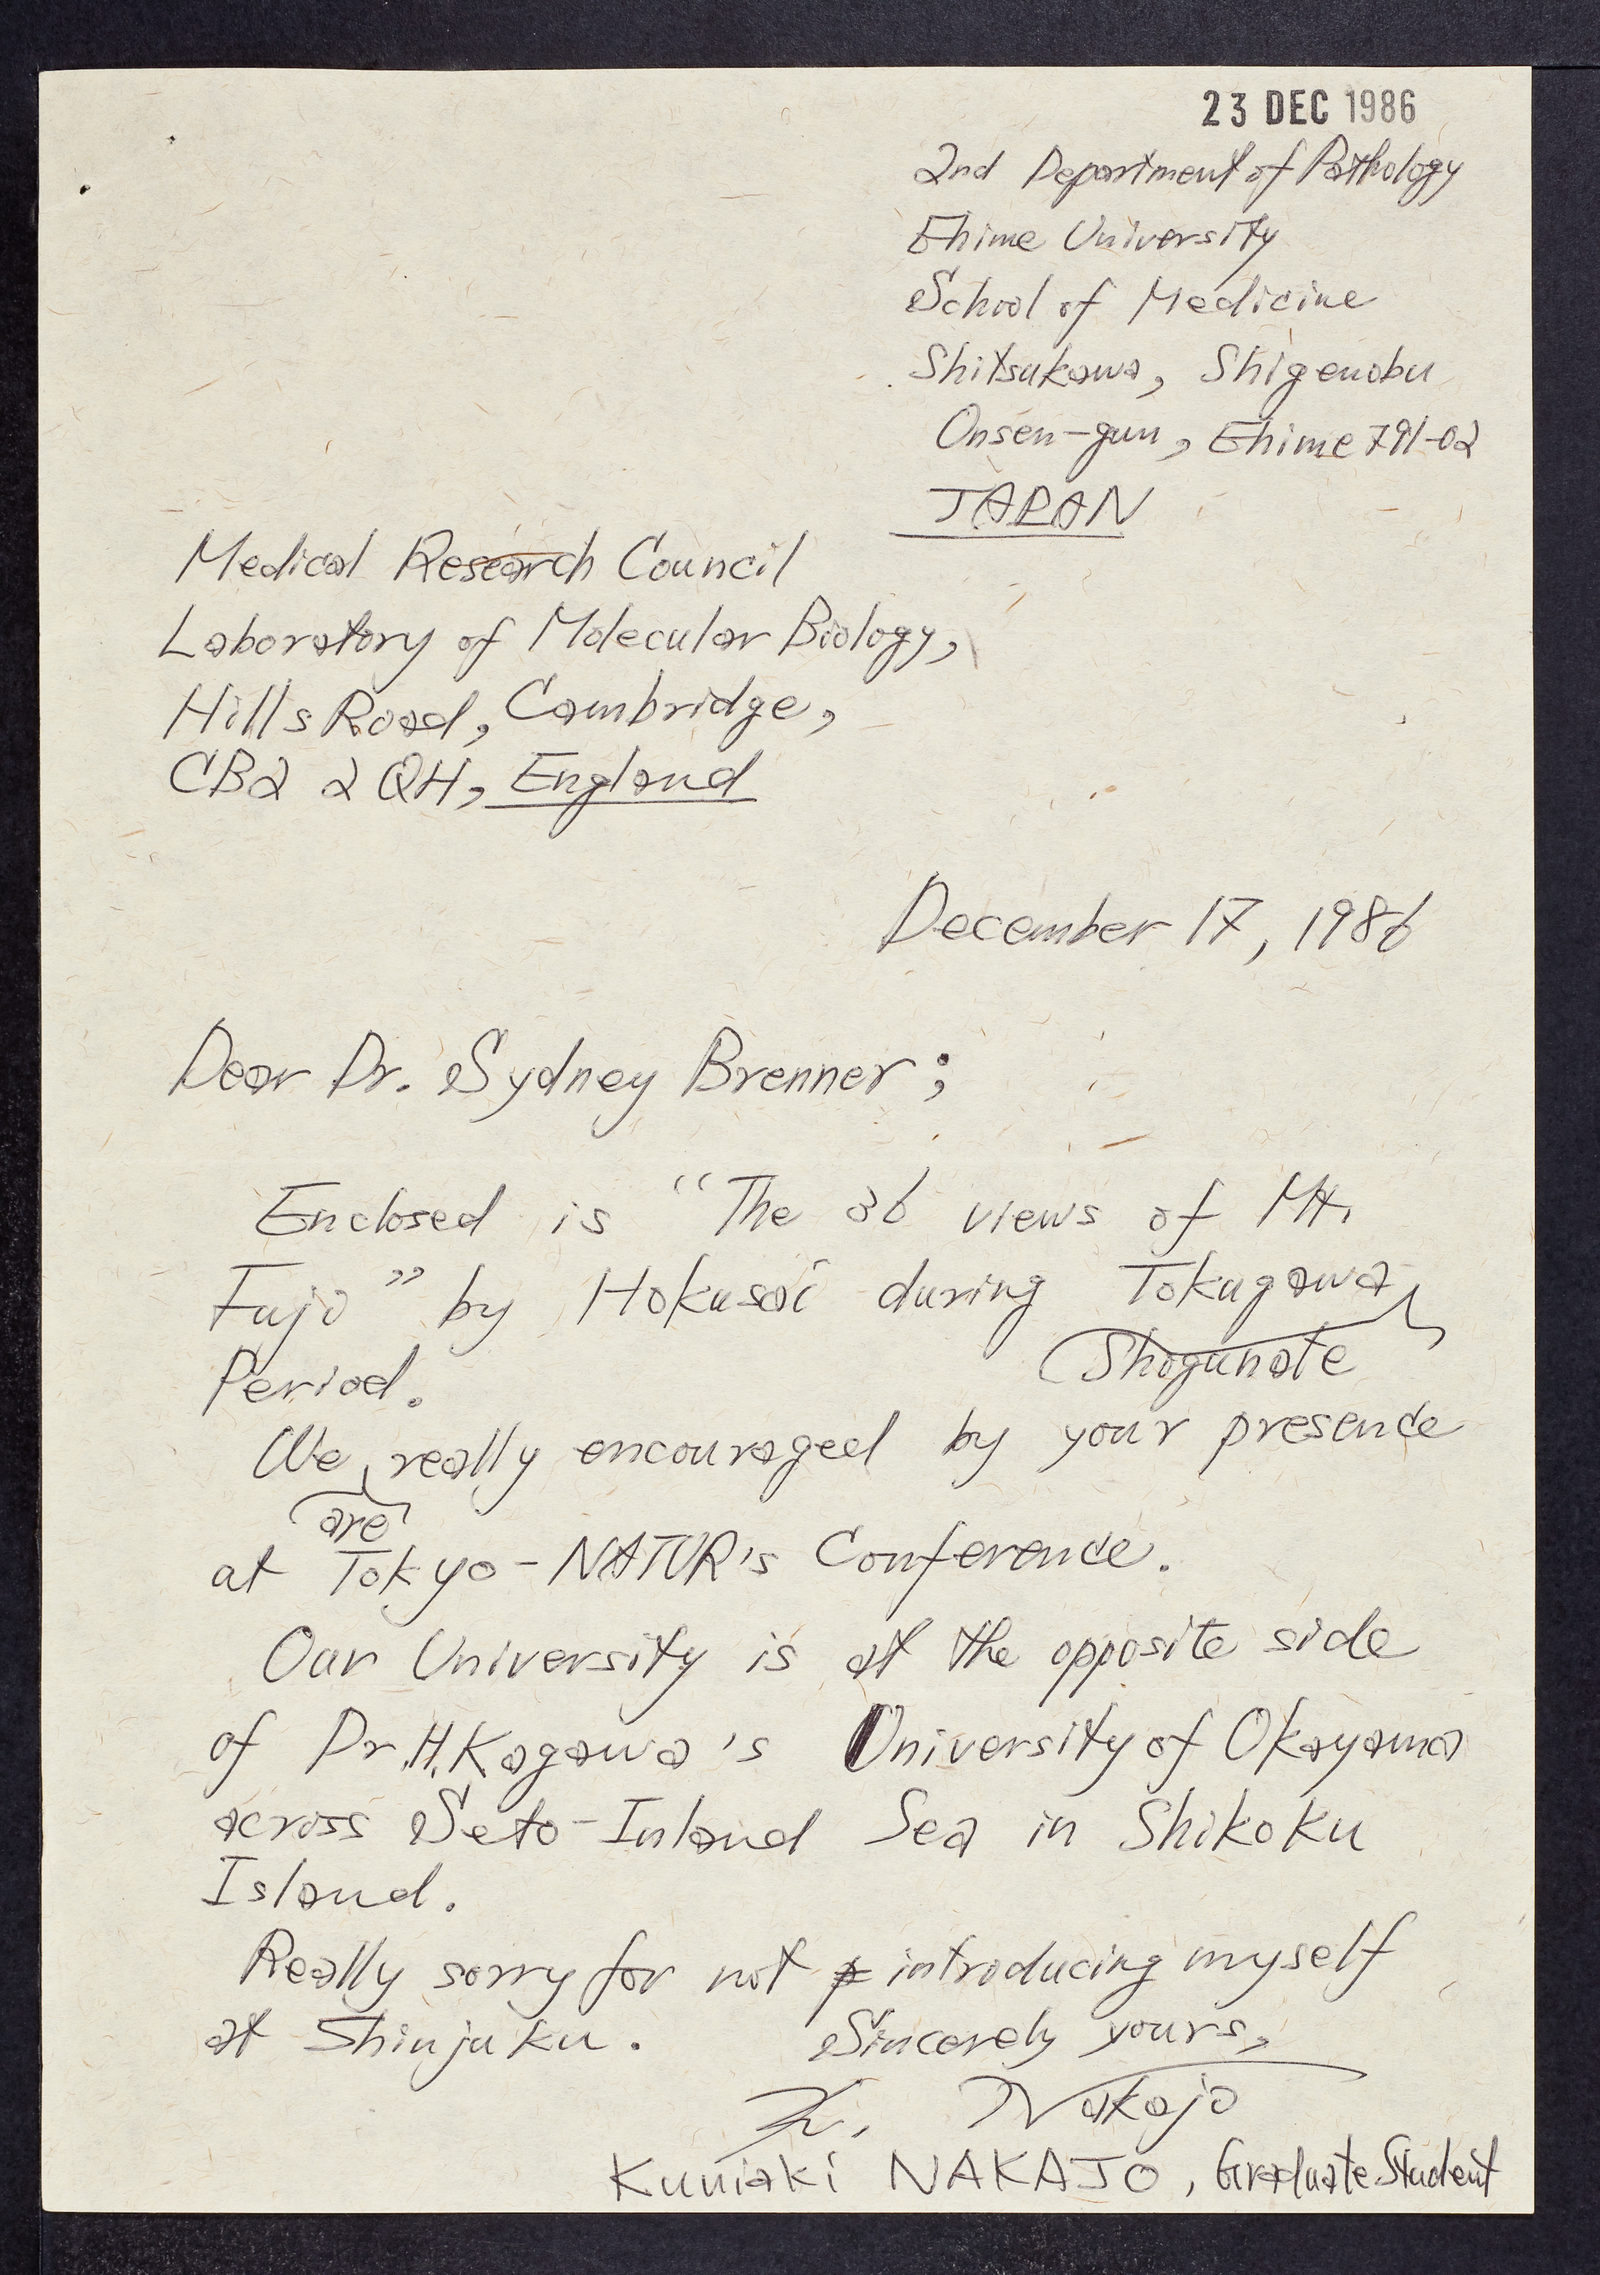 23 DEC 1986
2nd Department of Pathology
Ehime University
School of Medicine
Shitsukawa, Shigenobu
Onsen-gun, Ehime 791-02
JAPAN
Medical Research Council
Laboratory of Molecular Biology,
Hills Road, Cambridge,
CB2 2QH, England
December 17, 1986
Dear Dr. Sydney Brenner;
Enclosed is "The 36 views of Mt.
Fujo" by Hokusai during Tokugawa
Shogunate
Period.
We really encouraged by your presence
are
at Tokyo-NATUR's Conference.
Our University is at the opposite side
of Dr. H. Kagawa's University of Okayama
across Seto-Inland Sea in Shikoku
Island.
Really sorry for not introducing myself
at Shinjuku.
Sincerely yours,
K. Nakajo
Kuniaki NAKAJO, Graduate Student